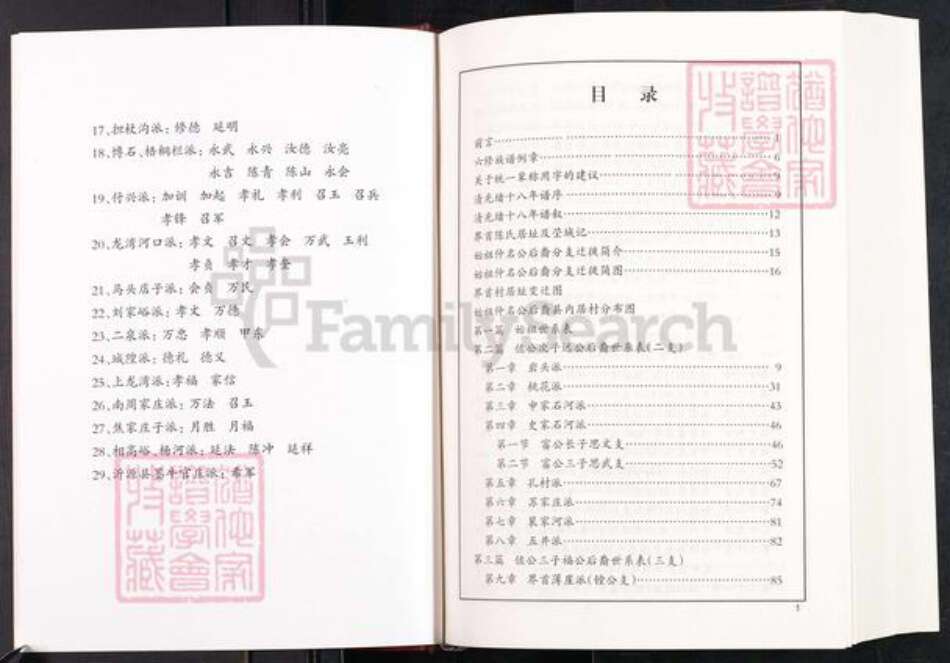 17、担杖沟派：修德 延明
18、博石、梧桐栏派：永武 永兴 汝德 汝亮
永言 陈青 陈山 永会
19、付兴派：加训 加起 孝礼 孝利 召玉 召兵
孝锋 召军
20、龙湾河口派：孝文 召文 孝会 万武 玉利
孝贞 孝才 孝奎
21、马头店子派：会贞 万民
22、刘家峪派：孝文 万德
23、二泉派：万忠 孝顺 甲东
24、城隍派：德礼 德义
25、上龙湾派：孝福 家信
26、南周家庄派：万法 召玉
27、焦家庄子派：月胜 月福
28、相高峪、杨河派：延法 陈冲 延祥
29、沂源县墨牛官庄派：希军
FamilySearch
目 录
前言 1
六修族谱例章 6
关于统一家称用字的建议 9
清光绪十八年谱序 9
清光绪十八年谱叙 12
界首陈氏居址及茔域记 13
始祖仲名公后裔分支迁徙简介 15
始祖仲名公后裔分支迁徙简图 16
界首村居址变迁图
始祖仲名公后裔县内居村分布图
第一篇 始祖世系表
第二篇 佐公次子远公后裔世系表(二支)
第一章 岩头派 9
第二章 桃花派 31
第三章 申家石河派 43
第四章 史家石河派 46
第一节 富公长子思文支 46
第二节 富公三子思武支 52
第五章 孔村派 67
第六章 苏家庄派 74
第七章 裴家河派 81
第八章 五井派 82
第三篇 佐公三子福公后裔世系表(三支)
第九章 界首薄崖派(镗公支) 85
1